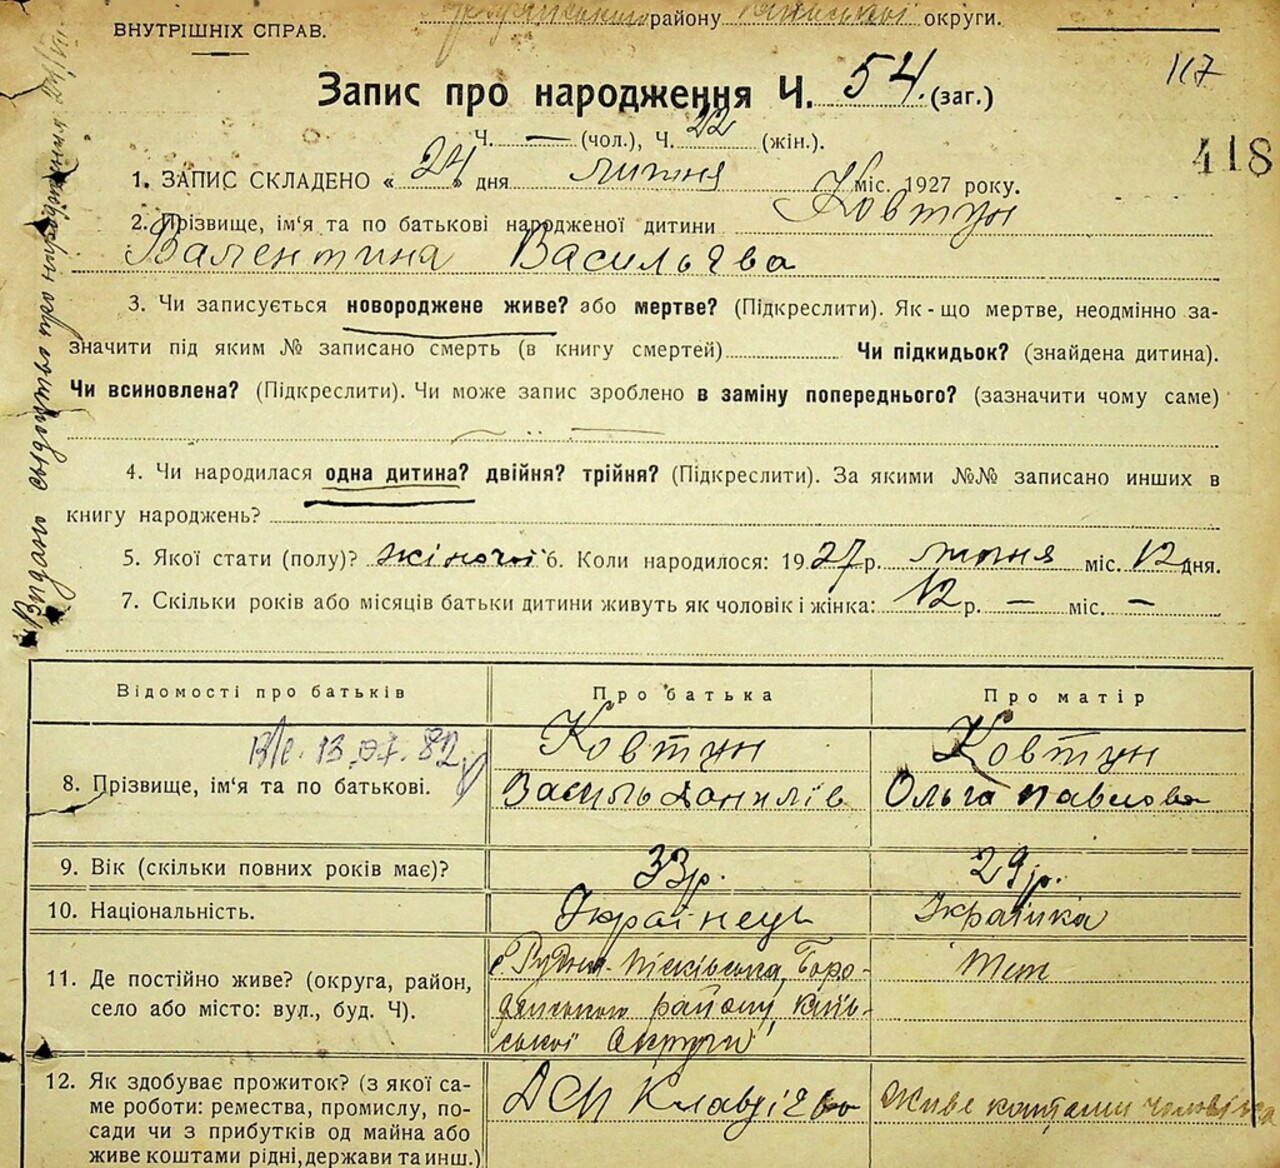 районy Київської округи.
ВНУТРІШНІХ СПРАВ.
117
Запис про народження Ч. 54. (заг.)
Ч. — (чол.), Ч. 22 (жін.).
418
1. ЗАПИС СКЛАДЕНО « 24 » дня липня міс. 1927 року.
2. Прізвище, ім'я та по батькові народженої дитини Ковтун
Валентина Васильєва
3. Чи записується новороджене живе? або мертве? (Підкреслити). Як-що мертве, неодмінно за-
значити під яким № записано смерть (в книгу смертей) Чи підкидьок? (знайдена дитина).
Чи всиновлена? (Підкреслити). Чи може запис зроблено в заміну попереднього? (зазначити чому саме)
4. Чи народилася одна дитина? двійня? трійня? (Підкреслити). За якими №№ записано инших в
книгу народжень?
5. Якої стати (полу)? жіночої 6. Коли народилося: 1927 р. липня міс. 12 дня.
7. Скільки років або місяців батьки дитини живуть як чоловік і жінка: 12 р. — міс. —
Видано про народження
Відомості про батьків Про батька Про матір
13.07.82
8. Прізвище, ім'я та по батькові.
Ковтун
Василь Данилів
Ковтун
Ольга Павлова
9. Вік (скільки повних років має)? 33 р. 29 р.
10. Національність. Українець Українка
11. Де постійно живе? (округа, район,
село або місто: вул., буд. Ч).
с. Рудня-Пісківська, Боро-
дянського району, Київ-
ської округи
Там
12. Як здобуває прожиток? (з якої са-
ме роботи: ремества, промислу, по-
сади чи з прибутків од майна або
живе коштами рідні, держави та инш.)
Клавдієво
Живе коштами чоловіка